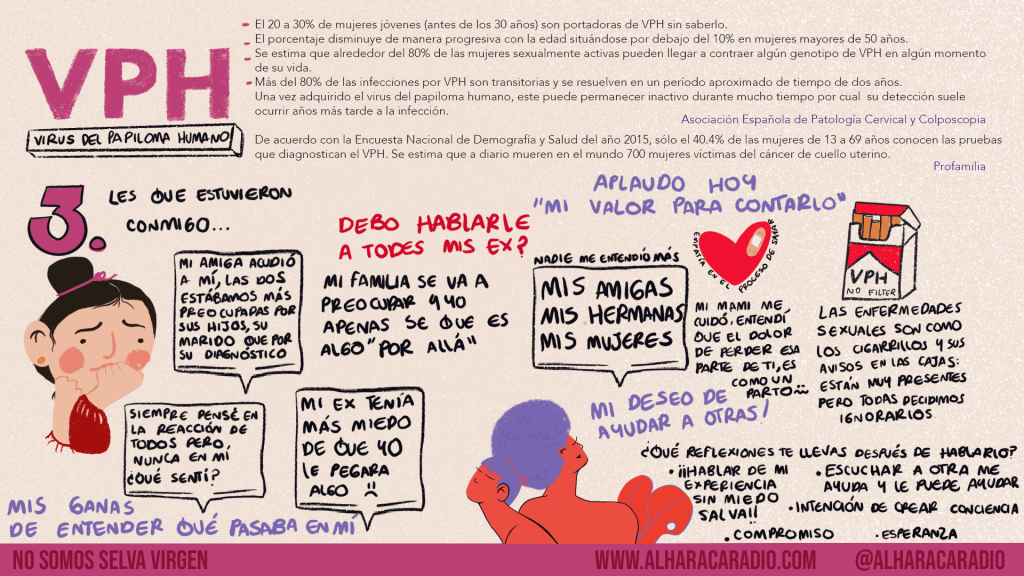 VPH
VIRUS DEL PAPILOMA HUMANO
- El 20 a 30% de mujeres jóvenes (antes de los 30 años) son portadoras de VPH sin saberlo.
- El porcentaje disminuye de manera progresiva con la edad situándose por debajo del 10% en mujeres mayores de 50 años.
- Se estima que alrededor del 80% de las mujeres sexualmente activas pueden llegar a contraer algún genotipo de VPH en algún momento
de su vida.
- Más del 80% de las infecciones por VPH son transitorias y se resuelven en un período aproximado de tiempo de dos años.
Una vez adquirido el virus del papiloma humano, este puede permanecer inactivo durante mucho tiempo por cual su detección suele
ocurrir años más tarde a la infección.
Asociación Española de Patología Cervical y Colposcopia
De acuerdo con la Encuesta Nacional de Demografía y Salud del año 2015, sólo el 40.4% de las mujeres de 13 a 69 años conocen las pruebas
que diagnostican el VPH. Se estima que a diario mueren en el mundo 700 mujeres víctimas del cáncer de cuello uterino.
Profamilia
3.
LES QUE ESTUVIERON
CONMIGO...
MI AMIGA ACUDIÓ
A MÍ, LAS DOS
ESTÁBAMOS MÁS
PREOCUPADAS POR
SUS HIJOS, SU
MARIDO QUE POR
SU DIAGNÓSTICO
SIEMPRE PENSÉ EN
LA REACCIÓN DE
TODOS PERO,
NUNCA EN MÍ
¿QUÉ SENTÍ?
MIS GANAS
DE ENTENDER QUÉ PASABA EN MÍ
DEBO HABLARLE
A TODES MIS EX?
MI FAMILIA SE VA A
PREOCUPAR Y YO
APENAS SE QUE ES
ALGO "POR ALLÁ"
MI EX TENÍA
MÁS MIEDO
DE QUE YO
LE PEGARA
ALGO :(
APLAUDO HOY
"MI VALOR PARA CONTARLO"
NADIE ME ENTENDIÓ MÁS
MIS AMIGAS
MIS HERMANAS
MIS MUJERES
EMPATÍA EN EL PROCESO DE SANAR
MI MAMI ME
CUIDÓ, ENTENDÍ
QUE EL DOLOR
DE PERDER ESA
PARTE DE TI, ES
COMO UN
PARTO...
VPH
NO FILTER
LAS ENFERMEDADES
SEXUALES SON COMO
LOS CIGARRILLOS Y SUS
AVISOS EN LAS CAJAS:
ESTÁN MUY PRESENTES
PERO TODAS DECIDIMOS
IGNORARLOS
MI DESEO DE
AYUDAR A OTRAS!
¿QUÉ REFLEXIONES TE LLEVAS DESPUÉS DE HABLARLO?
• ¡¡HABLAR DE MI
EXPERIENCIA
SIN MIEDO
SALVA!!
• COMPROMISO
• ESCUCHAR A OTRA ME
AYUDA Y LE PUEDE AYUDAR
• INTENCIÓN DE CREAR CONCIENCIA
• ESPERANZA
NO SOMOS SELVA VIRGEN
WWW.ALHARACARADIO.COM
@ALHARACARADIO